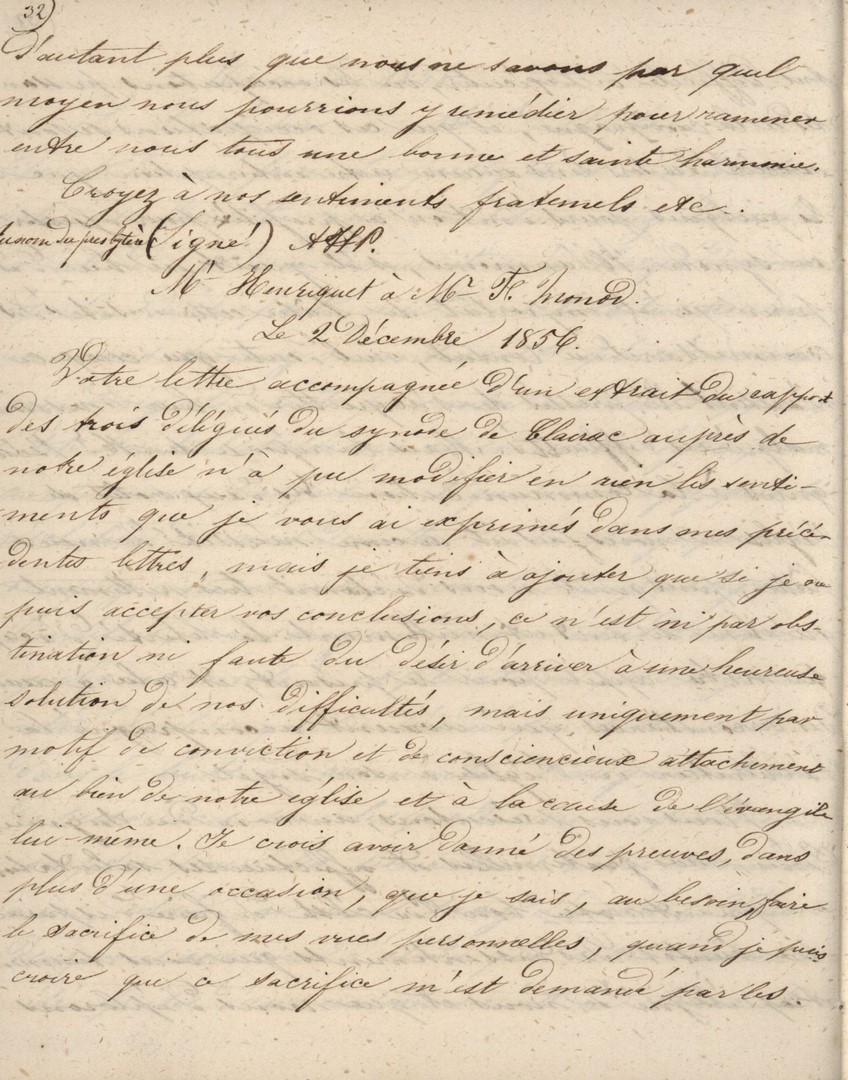 32)
D'autant plus que nous ne savons par quel
moyen nous pourrions y remédier pour ramener
entre nous tous une bonne et sainte harmonie.
Croyez à nos sentiments fraternels etc.
au nom du presbytère (Signé)
Mr Henriquet à Mr F. Monod.
Le 2 Décembre 1856.
Votre lettre accompagnée d'un extrait du rapport
des trois délégués du synode de Clairac auprès de
notre église n'a pu modifier en rien les senti-
ments que je vous ai exprimés dans mes précé-
dentes lettres, mais je tiens à ajouter que si je ne
puis accepter vos conclusions, ce n'est ni par obs-
tination ni faute du désir d'arriver à une heureuse
solution de nos difficultés, mais uniquement par
motif de conviction et de consciencieux attachement
au bien de notre église et à la cause de l'évangile
lui-même. Je crois avoir donné des preuves, dans
plus d'une occasion, que je sais, au besoin, faire
le sacrifice de mes vues personnelles, quand je puis
croire que ce sacrifice m'est demandé par les